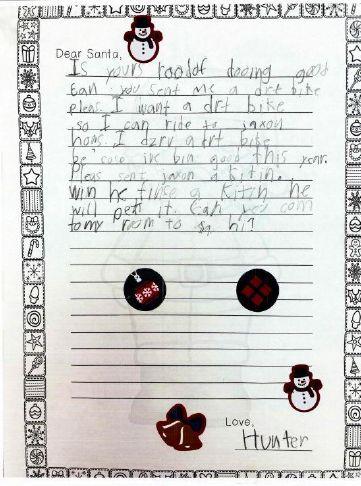 Dear Santa,
Is yours rooldf dooing good
Can you sent me a drt bike
pleas. I want a drt bike
so I can ride to jaxon
hons. I dzrv a drt bike
be cose ive bin good this year.
Pleas sent jaxon a kitin.
win he a kitin he
will pett it. Can you com
to my room to say hi?
Love,
Hunter